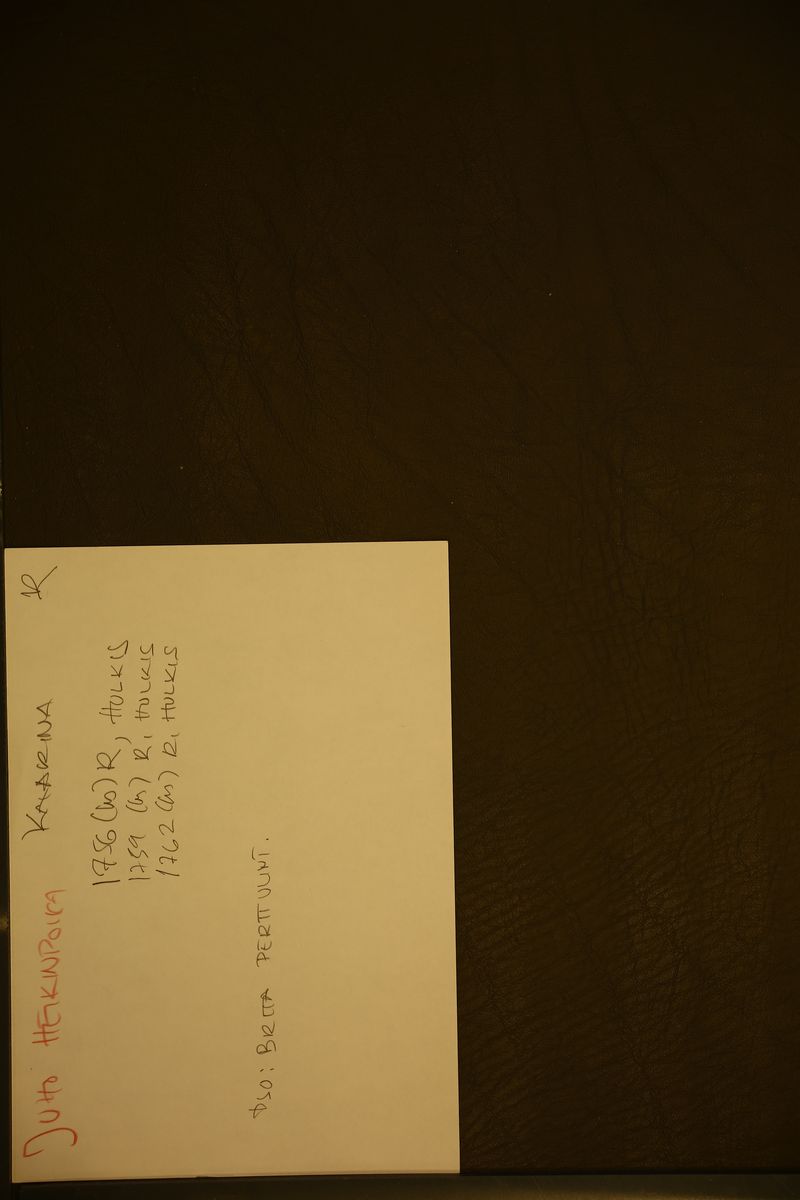 JUHO HEIKINPOIKA KATARINA R
1756 (hs) R, HULKIS
1759 (hs) R, HULKIS
1762 (hs) R, HULKIS
PSO: BRITA PERTTUUNT.